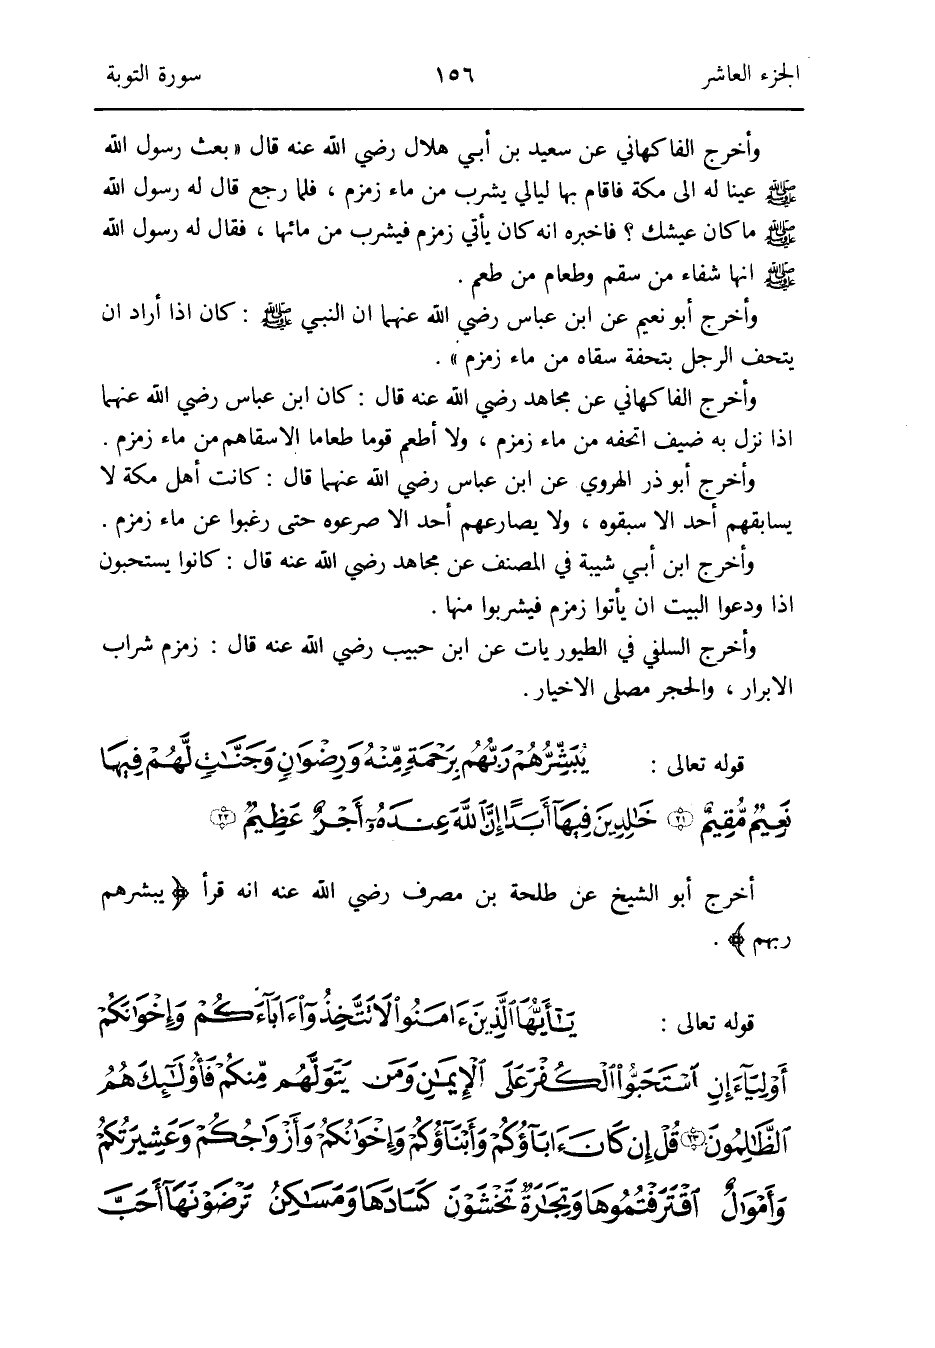 الجزء العاشر ١٥٦ سورة التوبة
وأخرج الفاكهاني عن سعيد بن أبي هلال رضي الله عنه قال « بعث رسول الله
ﷺ عينا له الى مكة فاقام بها ليالي يشرب من ماء زمزم ، فلما رجع قال له رسول الله
ﷺ ما كان عيشك ؟ فاخبره انه كان يأتي زمزم فيشرب من مائها ، فقال له رسول الله
ﷺ انها شفاء من سقم وطعام من طعم .
وأخرج أبو نعيم عن ابن عباس رضي الله عنهما ان النبي ﷺ : كان اذا أراد ان
يتحف الرجل بتحفة سقاه من ماء زمزم » .
وأخرج الفاكهاني عن مجاهد رضي الله عنه قال : كان ابن عباس رضي الله عنهما
اذا نزل به ضيف اتحفه من ماء زمزم ، ولا أطعم قوما طعاما الا سقاهم من ماء زمزم .
وأخرج أبو ذر الهروي عن ابن عباس رضي الله عنهما قال : كانت أهل مكة لا
يسابقهم أحد الا سبقوه ، ولا يصارعهم أحد الا صرعوه حتى رغبوا عن ماء زمزم .
وأخرج ابن أبي شيبة في المصنف عن مجاهد رضي الله عنه قال : كانوا يستحبون
اذا ودعوا البيت ان يأتوا زمزم فيشربوا منها .
وأخرج السلفي في الطيوريات عن ابن حبيب رضي الله عنه قال : زمزم شراب
الابرار ، والحجر مصلى الاخيار .
قوله تعالى : يُبَشِّرُهُمْ رَبُّهُم بِرَحْمَةٍ مِّنْهُ وَرِضْوَانٍ وَجَنَّاتٍ لَّهُمْ فِيهَا
نَعِيمٌ مُّقِيمٌ ﴿٢١﴾ خَالِدِينَ فِيهَا أَبَدًا إِنَّ اللَّهَ عِندَهُۥٓ أَجْرٌ عَظِيمٌ ﴿٢٢﴾
أخرج أبو الشيخ عن طلحة بن مصرف رضي الله عنه انه قرأ ﴿ يبشرهم
ربهم ﴾ .
قوله تعالى : يَٰٓأَيُّهَا ٱلَّذِينَ ءَامَنُوا۟ لَا تَتَّخِذُوٓا۟ ءَابَآءَكُمْ وَإِخْوَٰنَكُمْ
أَوْلِيَآءَ إِنِ ٱسْتَحَبُّوا۟ ٱلْكُفْرَ عَلَى ٱلْإِيمَٰنِ وَمَن يَتَوَلَّهُم مِّنكُمْ فَأُو۟لَٰٓئِكَ هُمُ
ٱلظَّٰلِمُونَ ﴿٢٣﴾ قُلْ إِن كَانَ ءَابَآؤُكُمْ وَأَبْنَآؤُكُمْ وَإِخْوَٰنُكُمْ وَأَزْوَٰجُكُمْ وَعَشِيرَتُكُمْ
وَأَمْوَٰلٌ ٱقْتَرَفْتُمُوهَا وَتِجَٰرَةٌ تَخْشَوْنَ كَسَادَهَا وَمَسَٰكِنُ تَرْضَوْنَهَآ أَحَبَّ